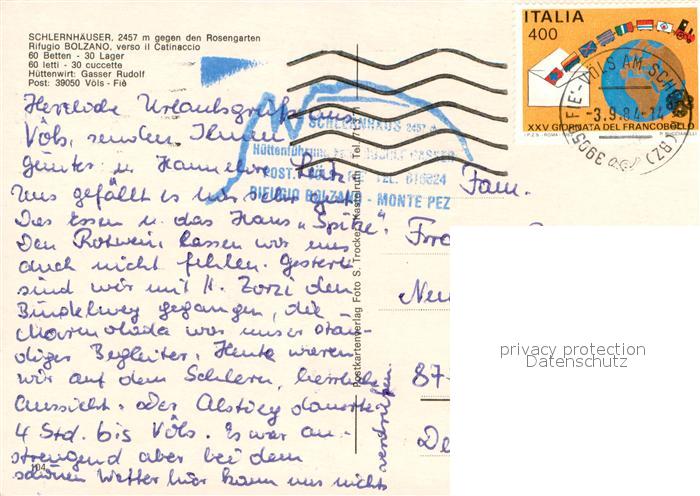 SCHLERNHÄUSER, 2457 m gegen den Rosengarten
Rifugio BOLZANO, verso il Catinaccio
60 Betten - 30 Lager
60 letti - 30 cuccette
Hüttenwirt: Gasser Rudolf
Post: 39050 Völs - Fiè
ITALIA
400
XXV GIORNATA DEL FRANCOBOLLO
FIE'-VÖLS AM
-3.9.84-14
39050 (BZ)
SCHLERNHAUS 2457
Hüttenführung
POST TEL. 616024
RIFUGIO BOLZANO - MONTE PEZ
Herzliche Urlaubsgrüße aus
Völs, senden Ihnen
Günter u. Hannelore
Uns gefällt es hier sehr gut
Das Essen u. das Haus „Spitze".
Den Rotwein lassen wir uns
auch nicht fehlen. Gestern
sind wir mit H. Zorzi den
Bindelweg gegangen, die
Marmolada war unser stän-
diger Begleiter. Heute waren
wir auf dem Schlern, herrliche
Aussicht. Der Abstieg dauerte
4 Std. bis Völs. Es war an-
strengend aber bei dem
schönen Wetter hier kann uns nichts
verdrießen
104
Postkartenverlag Foto S. Trocker, Kastelruth Tel.
Fam.
Neu
87
De
privacy protection
Datenschutz